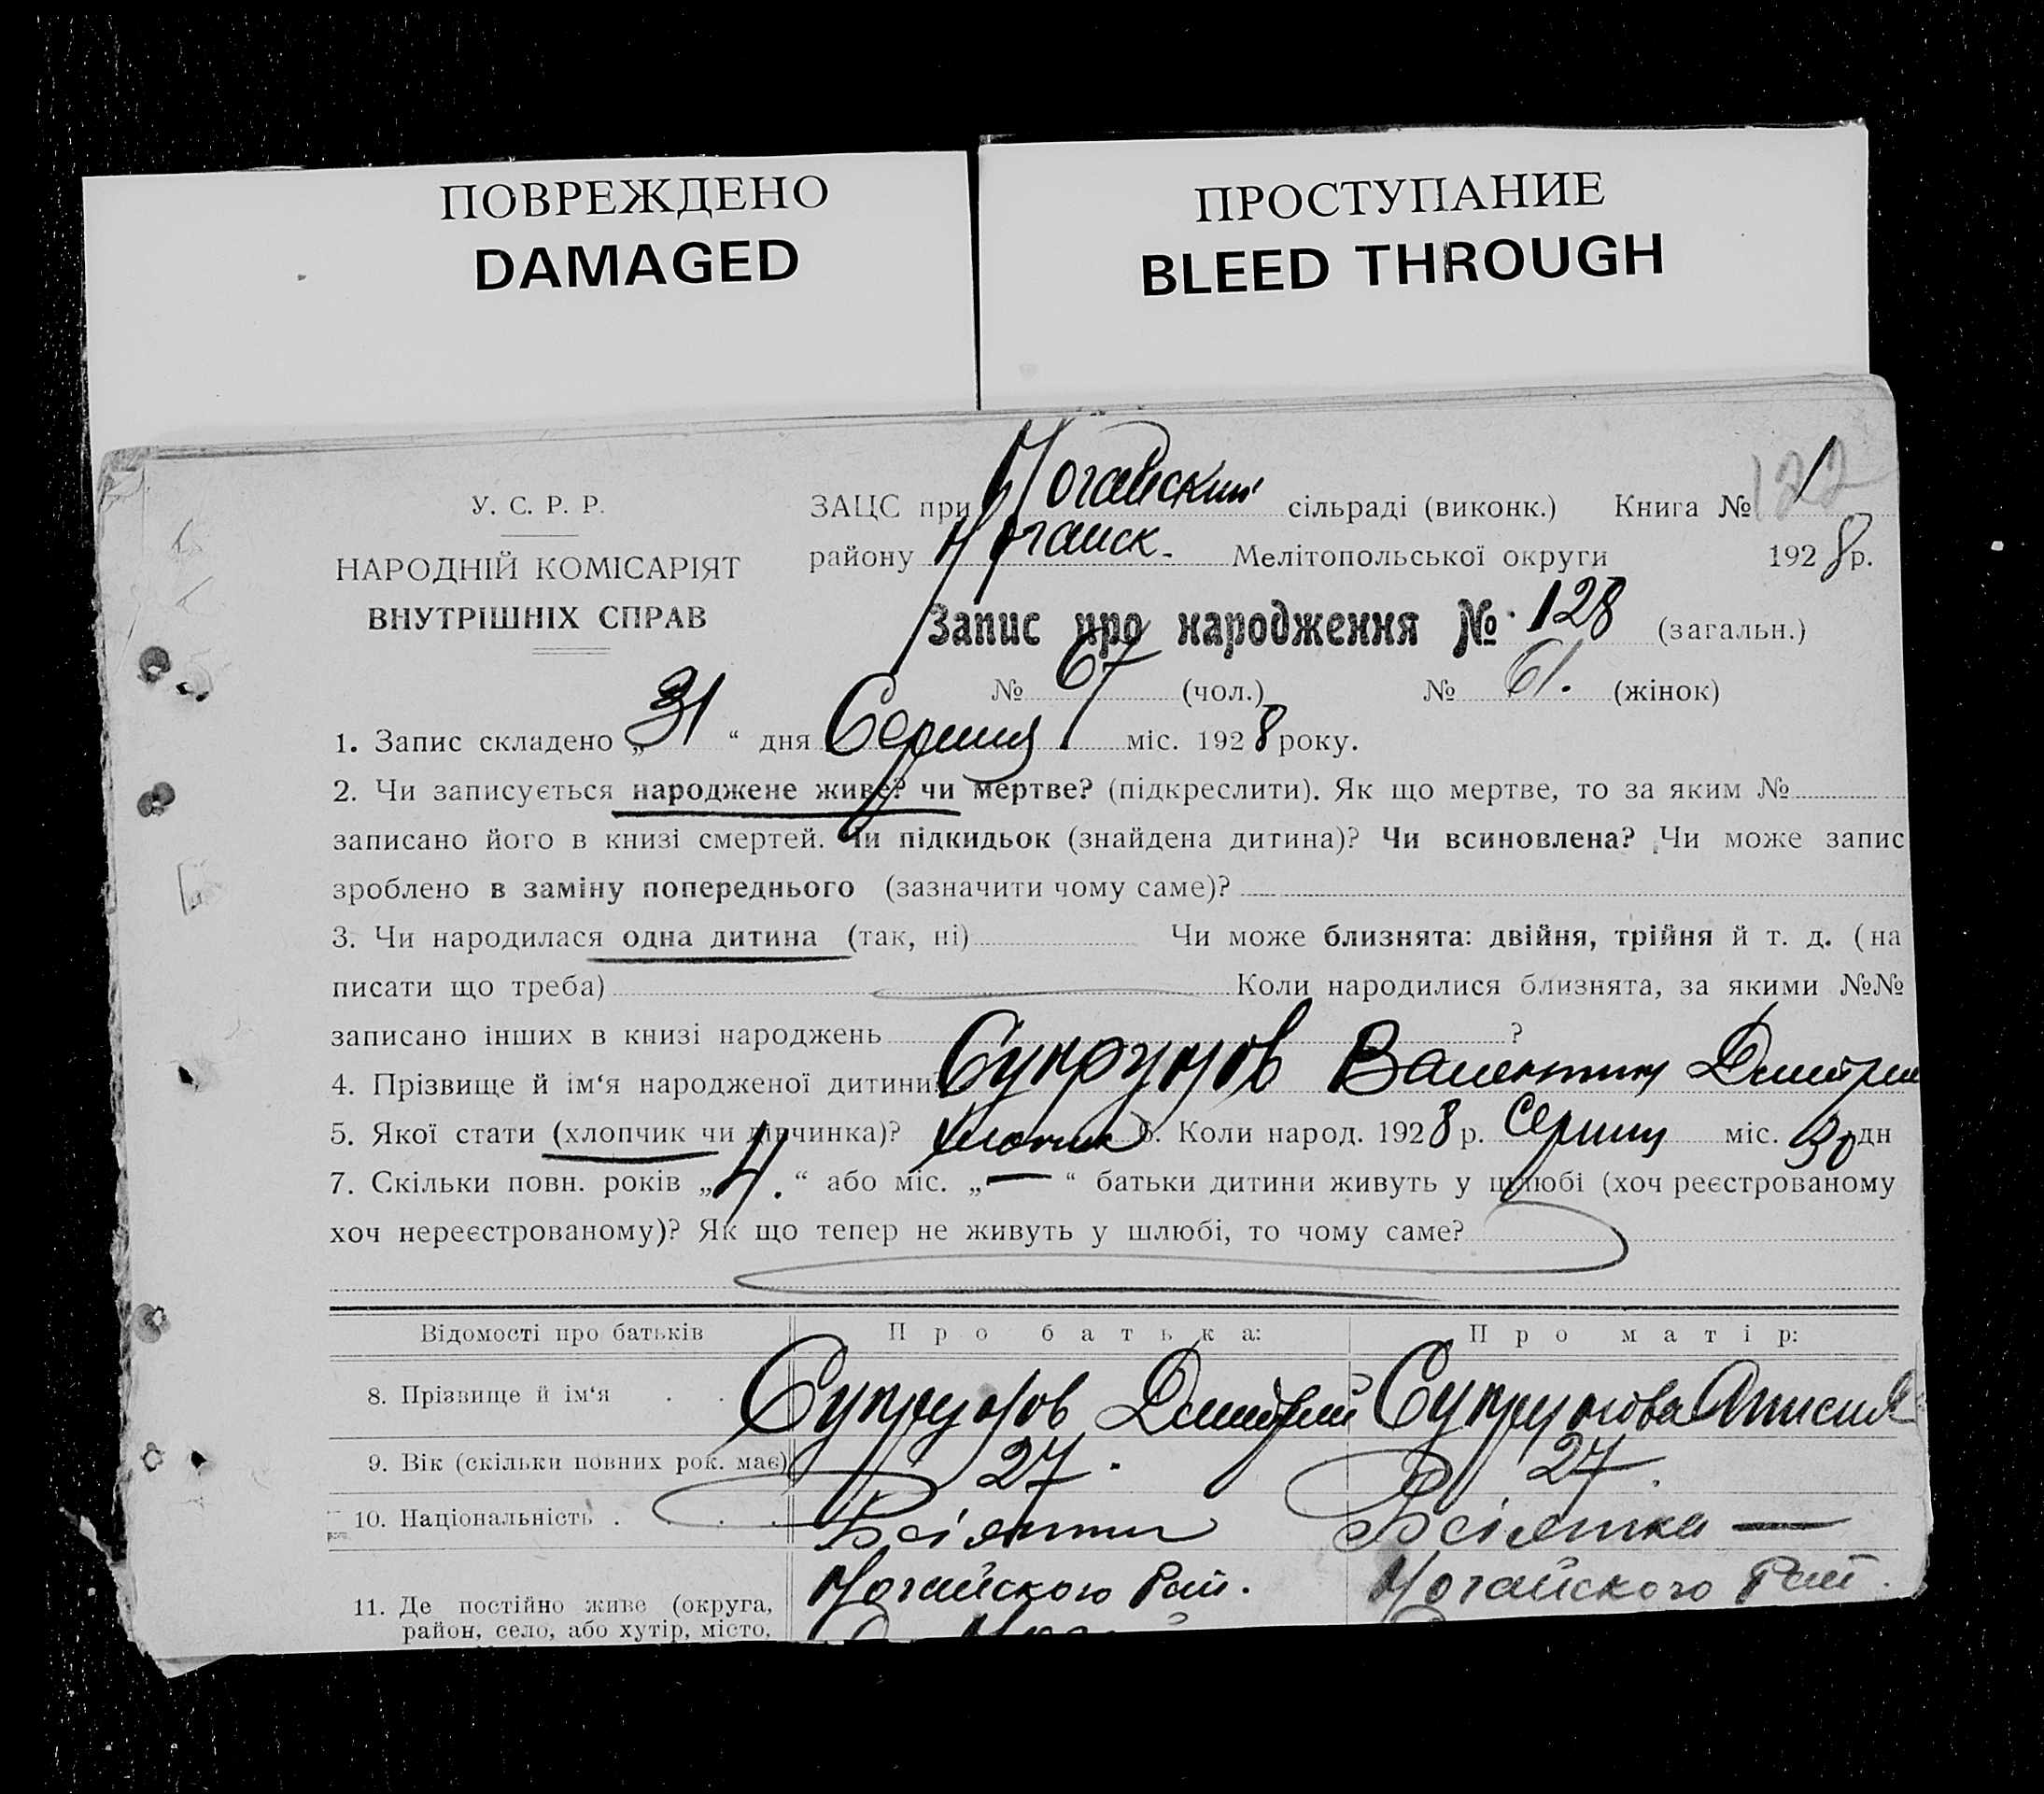 ПОВРЕЖДЕНО
DAMAGED
ПРОСТУПАНИЕ
BLEED THROUGH
122
У. С. Р. Р.
НАРОДНІЙ КОМІСАРІЯТ
ВНУТРІШНІХ СПРАВ
ЗАЦС при Ногайский сільраді (виконк.) Книга № 1
району Ногайск. Мелітопольської округи 1928 р.
Запис про народження № 128 (загальн.)
№ 67 (чол.) № 61. (жінок)
1. Запис складено „31“ дня Серпня міс. 1928 року.
2. Чи записується народжене живе? чи мертве? (підкреслити). Як що мертве, то за яким №
записано його в книзі смертей. Чи підкидьок (знайдена дитина)? Чи всиновлена? Чи може запис
зроблено в заміну попереднього (зазначити чому саме)?
3. Чи народилася одна дитина (так, ні) Чи може близнята: двійня, трійня й т. д. (на
писати що треба) Коли народилися близнята, за якими №№
записано інших в книзі народжень ?
4. Прізвище й ім‘я народженої дитини? Супрунов Валентин Дмитрий
5. Якої стати (хлопчик чи дівчинка)? хлопчик 6. Коли народ. 1928 р. Серпня міс. 30 дн
7. Скільки повн. років „4.“ або міс. „—“ батьки дитини живуть у шлюбі (хоч реєстрованому
хоч нереєстрованому)? Як що тепер не живуть у шлюбі, то чому саме?
Відомості про батьків Про батька: Про матір:
8. Прізвище й ім‘я . . Супрунов Дмитрий Супрунова Анисия
9. Вік (скільки повних рок. має) 27. 27.
10. Національність . . . .
11. Де постійно живе (округа, Ногайского Рай. Ногайского Рай.
район, село, або хутір, місто,